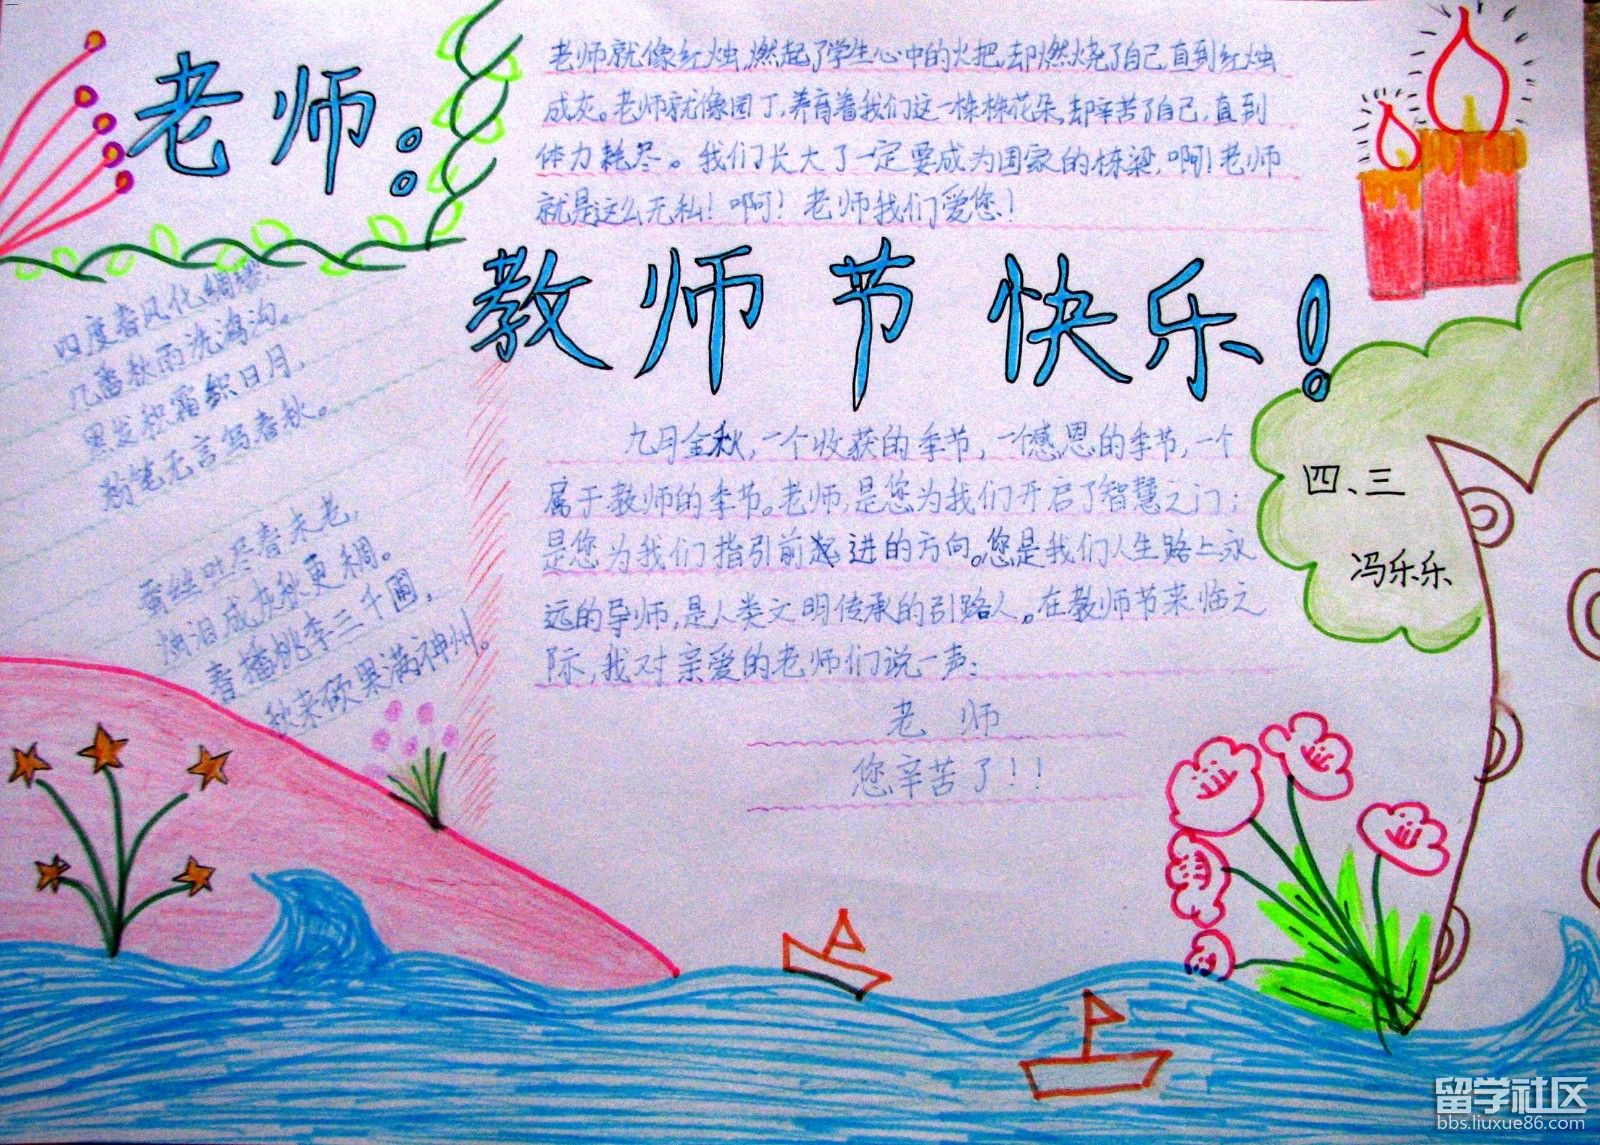 老师：
老师就像红烛，燃起了学生心中的火把，却燃烧了自己，直到红烛
成灰。老师就像园丁，养育着我们这一株株花朵，却辛苦了自己，直到
体力耗尽。我们长大了一定要成为国家的栋梁，啊！老师
就是这么无私！啊！老师我们爱您！
教师节快乐！
四度春风化绸缪，
几番秋雨洗鸿沟。
黑发积霜织日月，
粉笔无言写春秋。
蚕丝吐尽春未老，
烛泪成灰秋更稠。
春播桃李三千圃，
秋来硕果满神州。
九月金秋，一个收获的季节，一个感恩的季节，一个
属于教师的季节。老师，是您为我们开启了智慧之门；
是您为我们指引前进的方向。您是我们人生路上永
远的导师，是人类文明传承的引路人。在教师节来临之
际，我对亲爱的老师们说一声：
老师
您辛苦了！！
四、三
冯乐乐
留学社区
bbs.liuxue86.com